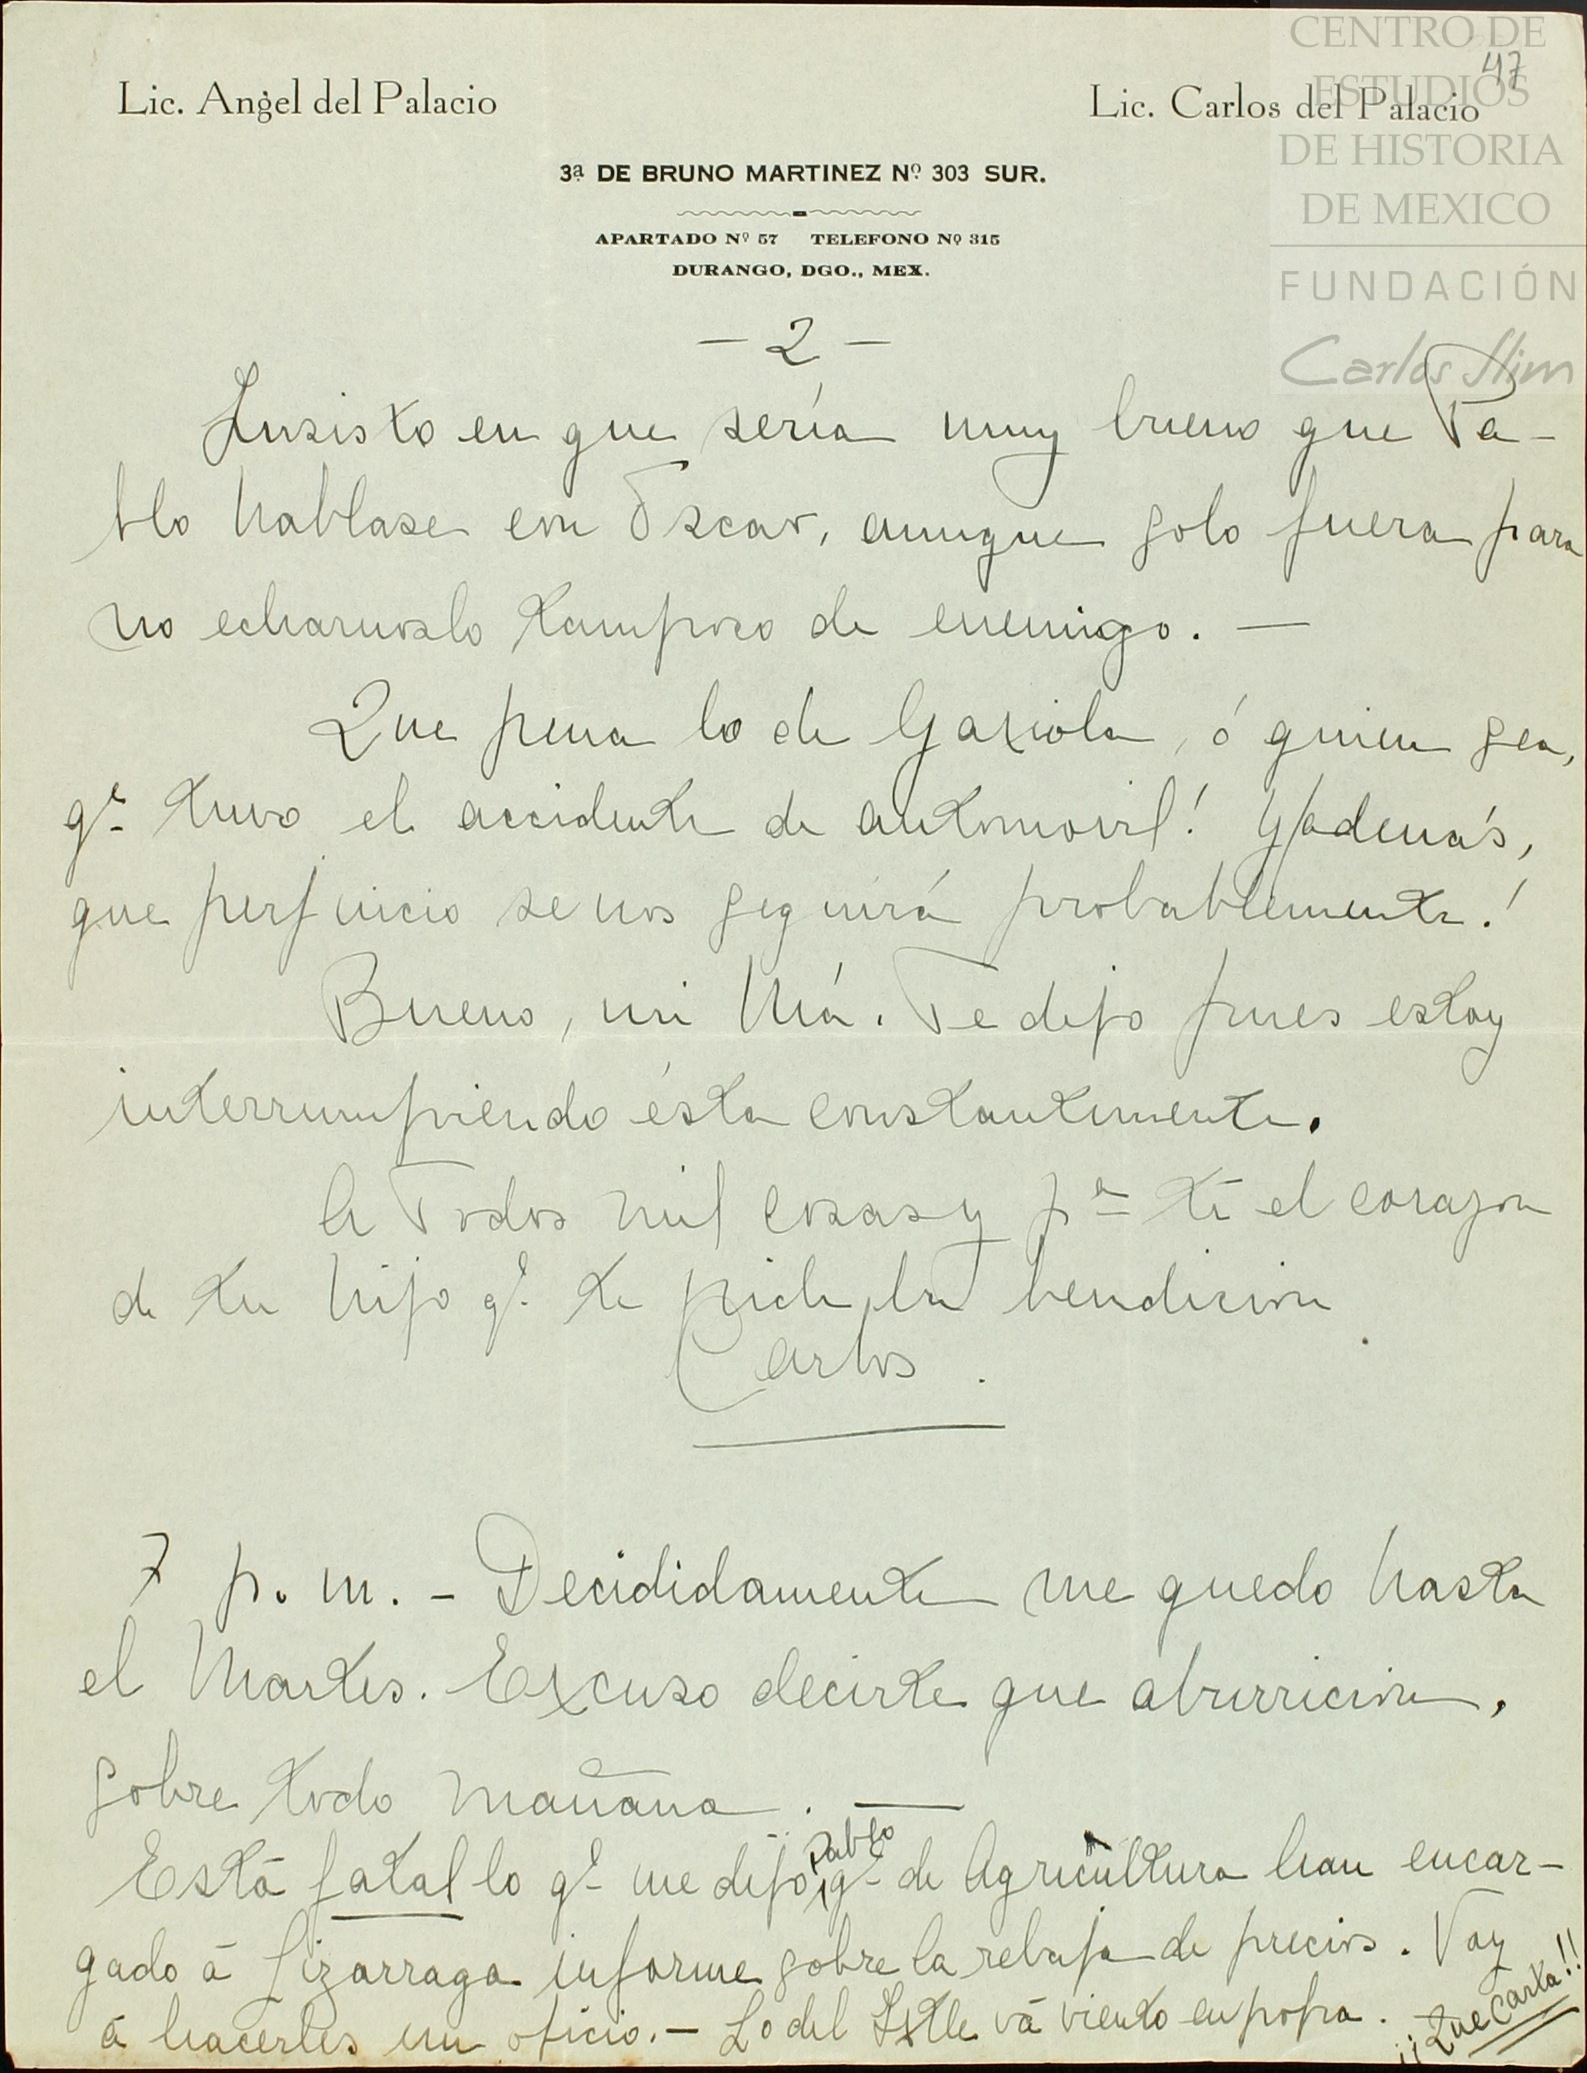 CENTRO DE
ESTUDIOS
DE HISTORIA
DE MEXICO
FUNDACIÓN
Carlos Slim
47
Lic. Angel del Palacio
Lic. Carlos del Palacio
3ª DE BRUNO MARTINEZ Nº 303 SUR.
APARTADO Nº 57 TELEFONO Nº 315
DURANGO, DGO., MEX.
- 2 -
Insisto en que sería muy bueno que Pa-
blo hablase con Oscar, aunque solo fuera para
no echarnoslo tampoco de enemigo. —
Que pena lo de Gaxiola, ó quien sea,
qe tuvo el accidente de automovil! Y además,
que perjuicio se nos seguirá probablemente!
Bueno, mi Má. Te dejo pues estoy
interrumpiendo ésta constantemente.
A Todos mil cosas y pa tí el corazon
de tu hijo qe te pide la bendicion
Carlos.
7 p. m. - Decididamente me quedo hasta
el Martes. Excuso decirte que aburricion,
sobre todo mañana. —
Está fatal lo qe me dijo Pablo, qe de Agricultura han encar-
gado á Lizarraga informe sobre la rebaja de precios. Voy
á hacerles un oficio. - Lo del Ixtle vá viento en popa.
¡¡Que Carta!!